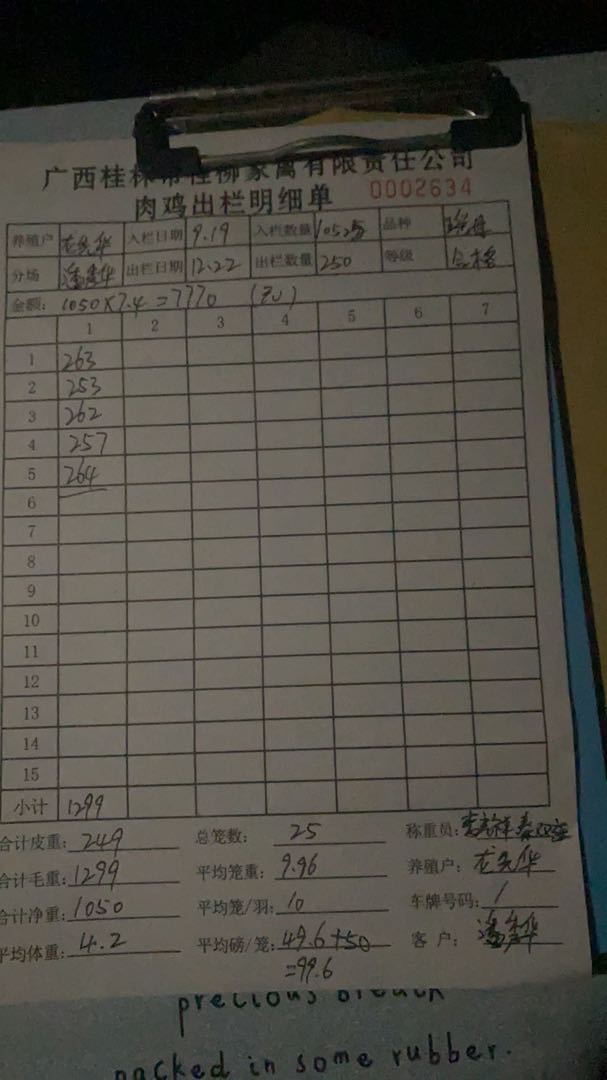 广西桂林市桂柳家禽有限责任公司
肉鸡出栏明细单 0002634
养殖户 龙先华 入栏日期 9.19 入栏数量 品种
分场 出栏日期 12.22 出栏数量 250 等级 合格
金额: 1050×7.4=7770
1 2 3 4 5 6 7
1 263
2 253
3 262
4 257
5 264
6
7
8
9
10
11
12
13
14
15
小计 1299
合计皮重: 249 总笼数: 25 称重员:
合计毛重: 1299 平均笼重: 9.96 养殖户: 龙先华
合计净重: 1050 平均笼/羽: 10 车牌号码: /
平均体重: 4.2 平均磅/笼: 49.6+50 客户:
=99.6
precious
packed in some rubber.